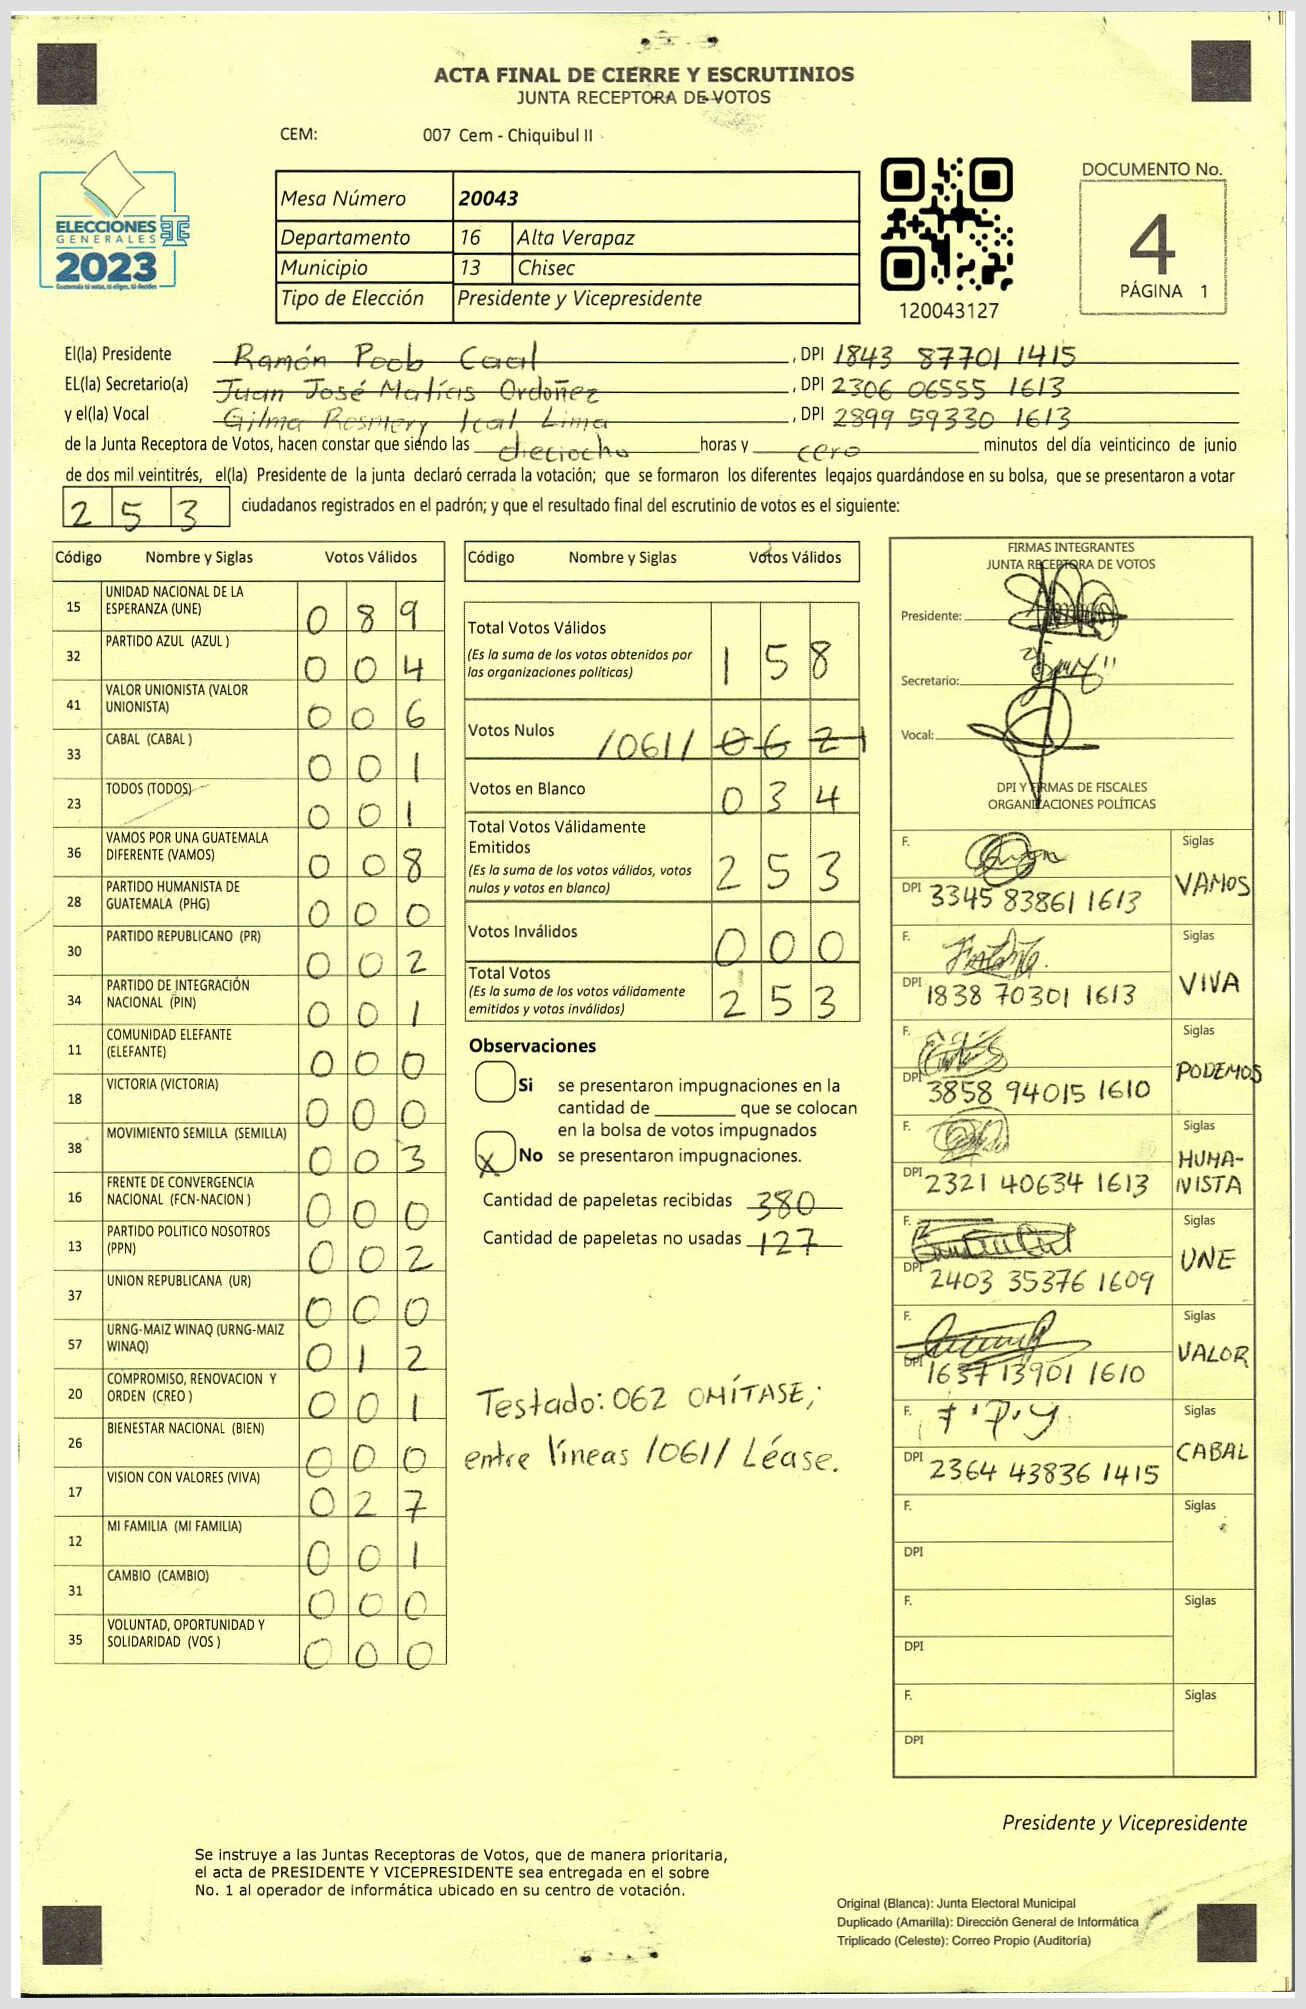 ACTA FINAL DE CIERRE Y ESCRUTINIOS
JUNTA RECEPTORA DE VOTOS
CEM: 007 Cem - Chiquibul II
ELECCIONES
GENERALES
2023
Guatemala tú votas, tú eliges, tú decides
Mesa Número 20043
Departamento 16 Alta Verapaz
Municipio 13 Chisec
Tipo de Elección Presidente y Vicepresidente
120043127
DOCUMENTO No.
4
PÁGINA 1
El(la) Presidente Ramón Poob Caal, DPI 1843 87701 1415
EL(la) Secretario(a) Juan José Matías Ordoñez, DPI 2306 06555 1613
y el(la) Vocal Gilma Rosmery Ical Lima, DPI 2899 59330 1613
de la Junta Receptora de Votos, hacen constar que siendo las dieciocho horas y cero minutos del día veinticinco de junio
de dos mil veintitrés, el(la) Presidente de la junta declaró cerrada la votación; que se formaron los diferentes legajos guardándose en su bolsa, que se presentaron a votar
253 ciudadanos registrados en el padrón; y que el resultado final del escrutinio de votos es el siguiente:
Código Nombre y Siglas Votos Válidos
15 UNIDAD NACIONAL DE LA
ESPERANZA (UNE) 089
32 PARTIDO AZUL (AZUL ) 004
41 VALOR UNIONISTA (VALOR
UNIONISTA) 006
33 CABAL (CABAL ) 001
23 TODOS (TODOS) 001
36 VAMOS POR UNA GUATEMALA
DIFERENTE (VAMOS) 008
28 PARTIDO HUMANISTA DE
GUATEMALA (PHG) 000
30 PARTIDO REPUBLICANO (PR) 002
34 PARTIDO DE INTEGRACIÓN
NACIONAL (PIN) 001
11 COMUNIDAD ELEFANTE
(ELEFANTE) 000
18 VICTORIA (VICTORIA) 000
38 MOVIMIENTO SEMILLA (SEMILLA) 003
16 FRENTE DE CONVERGENCIA
NACIONAL (FCN-NACION ) 000
13 PARTIDO POLITICO NOSOTROS
(PPN) 002
37 UNION REPUBLICANA (UR) 000
57 URNG-MAIZ WINAQ (URNG-MAIZ
WINAQ) 012
20 COMPROMISO, RENOVACION Y
ORDEN (CREO ) 001
26 BIENESTAR NACIONAL (BIEN) 000
17 VISION CON VALORES (VIVA) 027
12 MI FAMILIA (MI FAMILIA) 001
31 CAMBIO (CAMBIO) 000
35 VOLUNTAD, OPORTUNIDAD Y
SOLIDARIDAD (VOS ) 000
Código Nombre y Siglas Votos Válidos
Total Votos Válidos
(Es la suma de los votos obtenidos por
las organizaciones políticas) 158
Votos Nulos /061/ 062
Votos en Blanco 034
Total Votos Válidamente
Emitidos
(Es la suma de los votos válidos, votos
nulos y votos en blanco) 253
Votos Inválidos 000
Total Votos
(Es la suma de los votos válidamente
emitidos y votos inválidos) 253
Observaciones
Si se presentaron impugnaciones en la
cantidad de ________ que se colocan
en la bolsa de votos impugnados
X No se presentaron impugnaciones.
Cantidad de papeletas recibidas 380
Cantidad de papeletas no usadas 127
Testado: 062 OMÍTASE;
entre líneas /061/ Léase.
FIRMAS INTEGRANTES
JUNTA RECEPTORA DE VOTOS
Presidente:
Secretario:
Vocal:
DPI Y FIRMAS DE FISCALES
ORGANIZACIONES POLÍTICAS
F. Siglas
DPI 3345 83861 1613 VAMOS
F. Siglas
DPI 1838 70301 1613 VIVA
F. Siglas
DPI 3858 94015 1610 PODEMOS
F. Siglas
DPI 2321 40634 1613 HUMA-
NISTA
F. Siglas
DPI 2403 35376 1609 UNE
F. Siglas
DPI 1637 13901 1610 VALOR
F. Siglas
DPI 2364 43836 1415 CABAL
F. Siglas
DPI
F. Siglas
DPI
F. Siglas
DPI
Presidente y Vicepresidente
Se instruye a las Juntas Receptoras de Votos, que de manera prioritaria,
el acta de PRESIDENTE Y VICEPRESIDENTE sea entregada en el sobre
No. 1 al operador de informática ubicado en su centro de votación.
Original (Blanca): Junta Electoral Municipal
Duplicado (Amarilla): Dirección General de Informática
Triplicado (Celeste): Correo Propio (Auditoría)